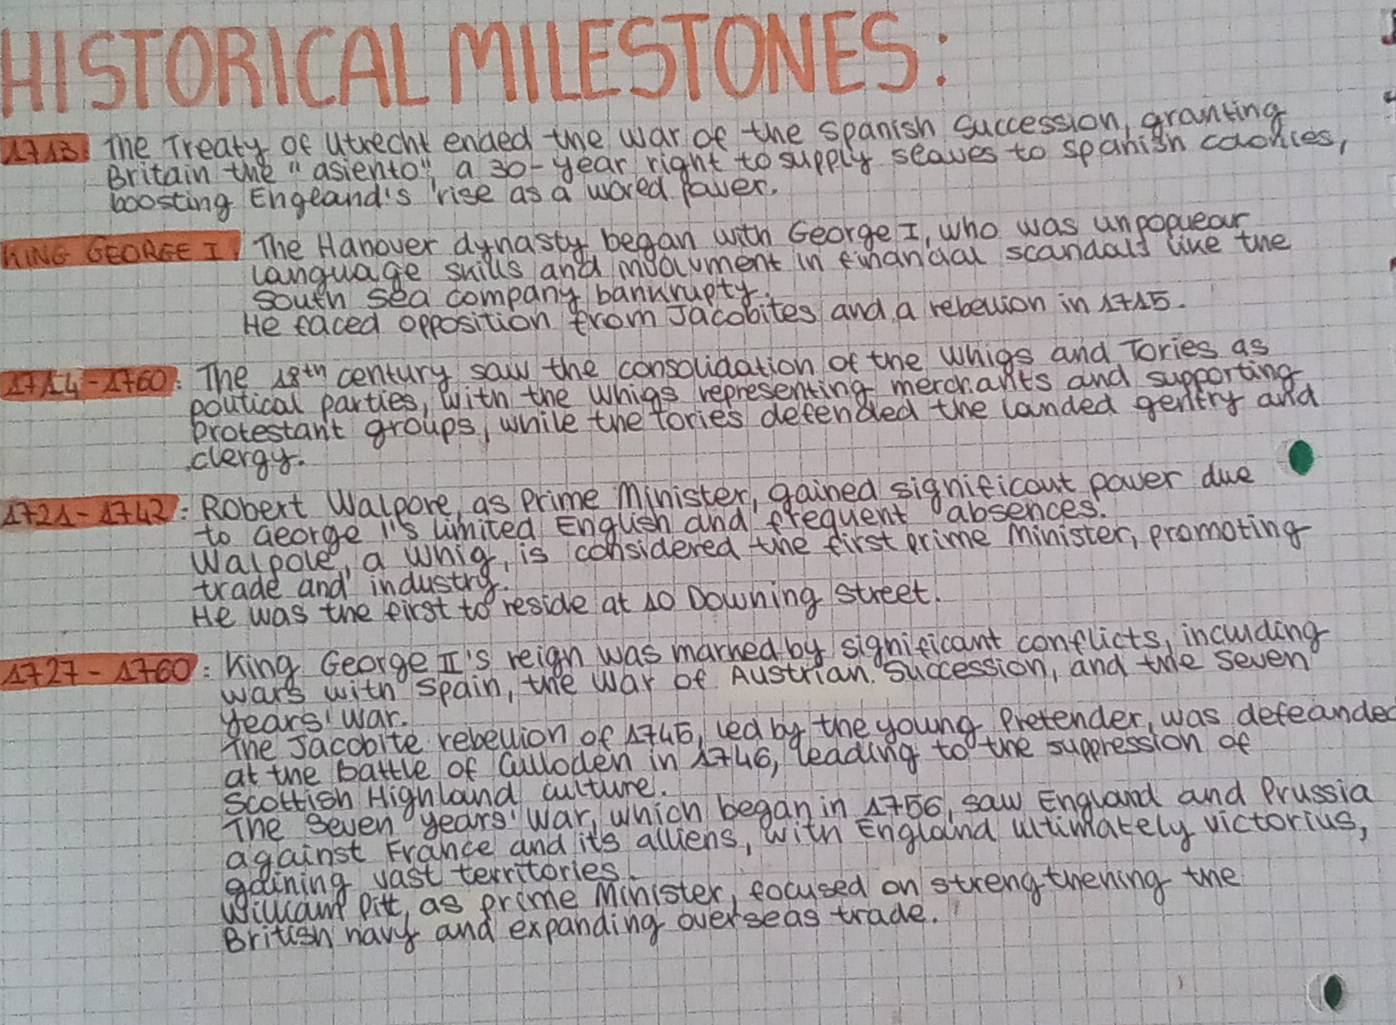 HISTORICAL MILESTONES:
1713 The Treaty of Utrecht ended the War of the Spanish Succession, granting
Britain the "asiento", a 30-year right to supply slaves to Spanish colonies,
boosting England's rise as a world power.
KING GEORGE I The Hanover dynasty began with George I, who was unpopular
language skills and involvment in financial scandals like the
South Sea company bankrupty.
He faced opposition from Jacobites and a rebellion in 1715.
1714-1760: The 18th century saw the consolidation of the Whigs and Tories as
political parties, with the Whigs representing merchants and supporting
Protestant groups, while the Tories defended the landed gentry and
clergy.
1721-1742: Robert Walpore, as Prime Minister, gained significant power due
to George I's limited English and frequent absences.
Walpole, a Whig, is considered the first prime Minister, promoting
trade and industry.
He was the first to reside at 10 Downing Street.
1727-1760: King George II's reign was marked by significant conflicts, including
wars with Spain, the War of Austrian Succession, and the Seven
Years' War.
The Jacobite rebellion of 1745, led by the young Pretender, was defeanded
at the Battle of Culloden in 1746, leading to the suppression of
Scottish Highland culture.
The Seven years' War, which began in 1756, saw England and Prussia
against France and its alliens, with England ultimately victorius,
gaining vast territories.
William Pitt, as prime Minister, focused on strengthening the
British navy and expanding overseas trade.